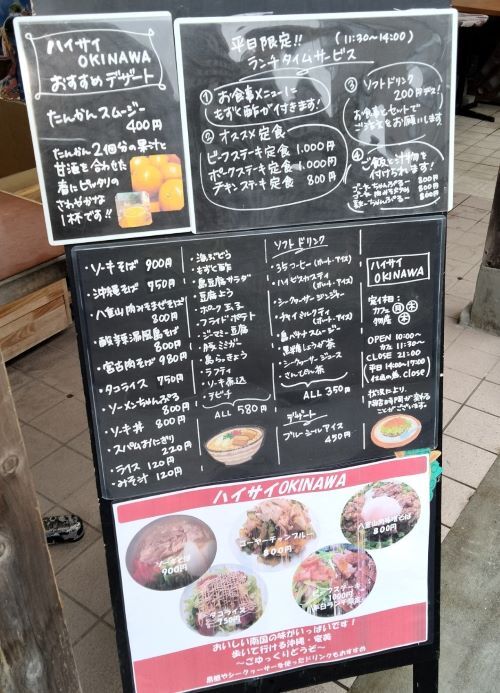 ハイサイ
OKINAWA
おすすめデザート
たんかんスムージー
400円
たんかん2個分の果汁と
甘酒を合わせた
春にピッタリの
さわやかな
1杯です!!
平日限定!! (11:30~14:00)
ランチタイムサービス
① お食事メニューに
もずく酢が付きます!
② オススメ定食
ビーフステーキ定食 1,000円
ポークステーキ定食 1,000円
チキンステーキ定食 800円
③ ソフトドリンク
200円デス!
お食事とセットで
ご注文をお願いします。
④ ご飯と汁物を
付けられます!
ゴーヤーちゃんぷるー 800円
800円
ちゃんぷるー 800円
・ソーキそば 900円
・沖縄そば 750円
・八重山肉みそまぜそば
800円
・酸辣湯風島そば
800円
・宮古肉そば 980円
・タコライス 750円
・ソーメンちゃんぷる
800円
・ソーキ丼 800円
・スパムおにぎり
220円
・ライス 120円
・みそ汁 120円
・海ぶどう
・もずく酢
・島豆腐サラダ
・豆腐よう
・ポーク玉子
・フライドポテト
・ジーマミー豆腐
・豚ミミガー
・島らっきょう
・ラフティ
・ソーキ煮込
・テビチ
ALL 580円
ソフトドリンク
・35コーヒー(ホット・アイス)
・ハイビスカスティ
(ホット・アイス)
・シークヮーサージンジャー
・チャイミルクティ
(ホット・アイス)
・島バナナスムージー
・黒糖しょうが茶
・シークヮーサージュース
・さんぴん茶
ALL 350円
デザート
・ブルーシールアイス
450円
ハイサイ
OKINAWA
定休日:
カフェ 月 木
物産 木
OPEN 10:00~
カフェ 11:30~
CLOSE 21:00
平日 14:00~17:00
Close)
状況により、
時間が変わる
ことがございます。
ハイサイOKINAWA
ソーキそば
900円
ゴーヤーチャンプルー
800円
八重山肉味噌そば
800円
タコライス
750円
ビーフステーキ
1000円
(平日ランチ限定)
おいしい南国の味がいっぱいです!
歩いて行ける沖縄・奄美
~ごゆっくりどうぞ~
黒糖やシークヮーサーを使ったドリンクもおすすめ